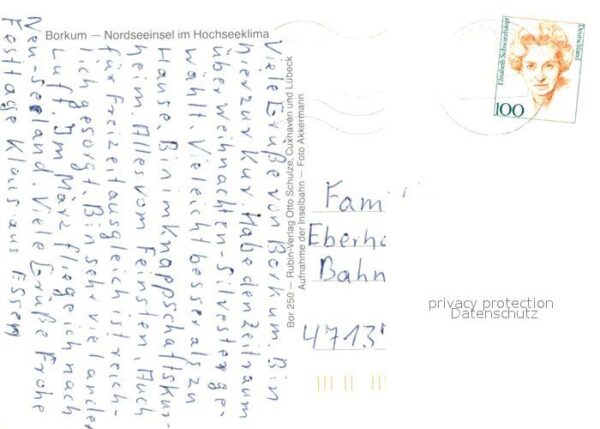 Borkum — Nordseeinsel im Hochseeklima
Viele Grüße von Borkum. Bin
hier zur Kur. Habe den Zeitraum
über Weihnachten-Silvester ge-
wählt. Vieleicht besser als zu
Hause. Bin im Knappschaftskur-
heim. Alles vom Feinsten, Auch
für Freizeitausgleich ist reich-
lich gesorgt. Bin sehr viel an der
Luft. Im März fliege ich nach
Neu-Seeland. Viele Grüße Frohe
Festtage Klaus aus Essen
Bor 250 — Rubin-Verlag Otto Schulze, Cuxhaven und Lübeck
Aufnahme der Inselbahn — Foto Akkermann
Elisabeth Schwarzhaupt
Deutschland
100
Fami
Eberha
Bahn
4713
privacy protection
Datenschutz